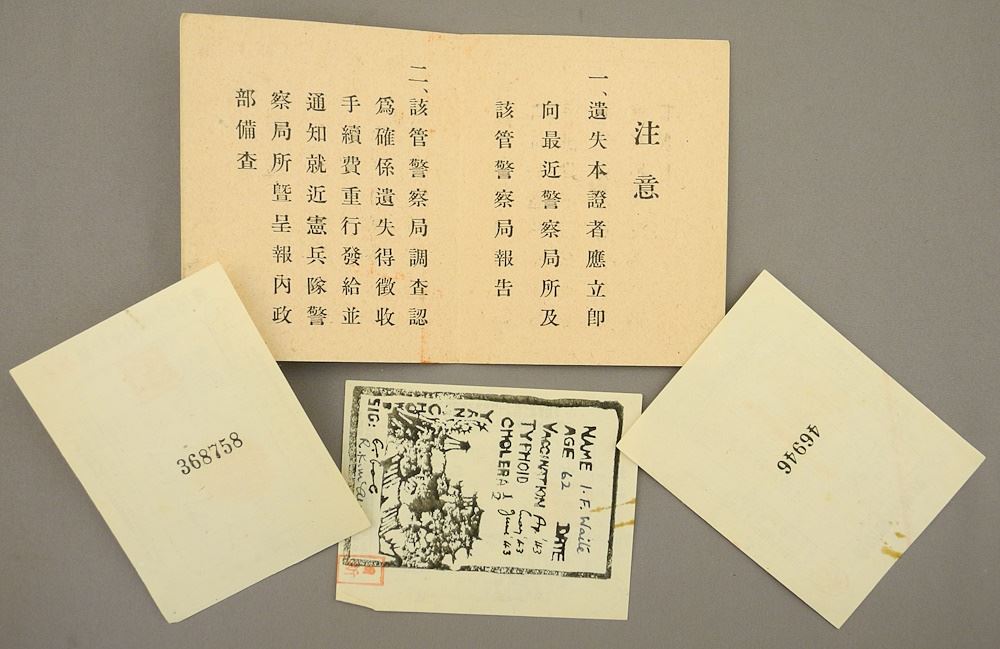 注意
一、遺失本證者應立卽
向最近警察局所及
該管警察局報告
二、該管警察局調查認
爲確係遺失得徵收
手續費重行發給並
通知就近憲兵隊警
察局所曁呈報內政
部備查
368758
NAME I. F. Waite
AGE 62 DATE
VACCINATION Ap '43
TYPHOID May '43
CHOLERA 1 2 June '43
SIG:
46946